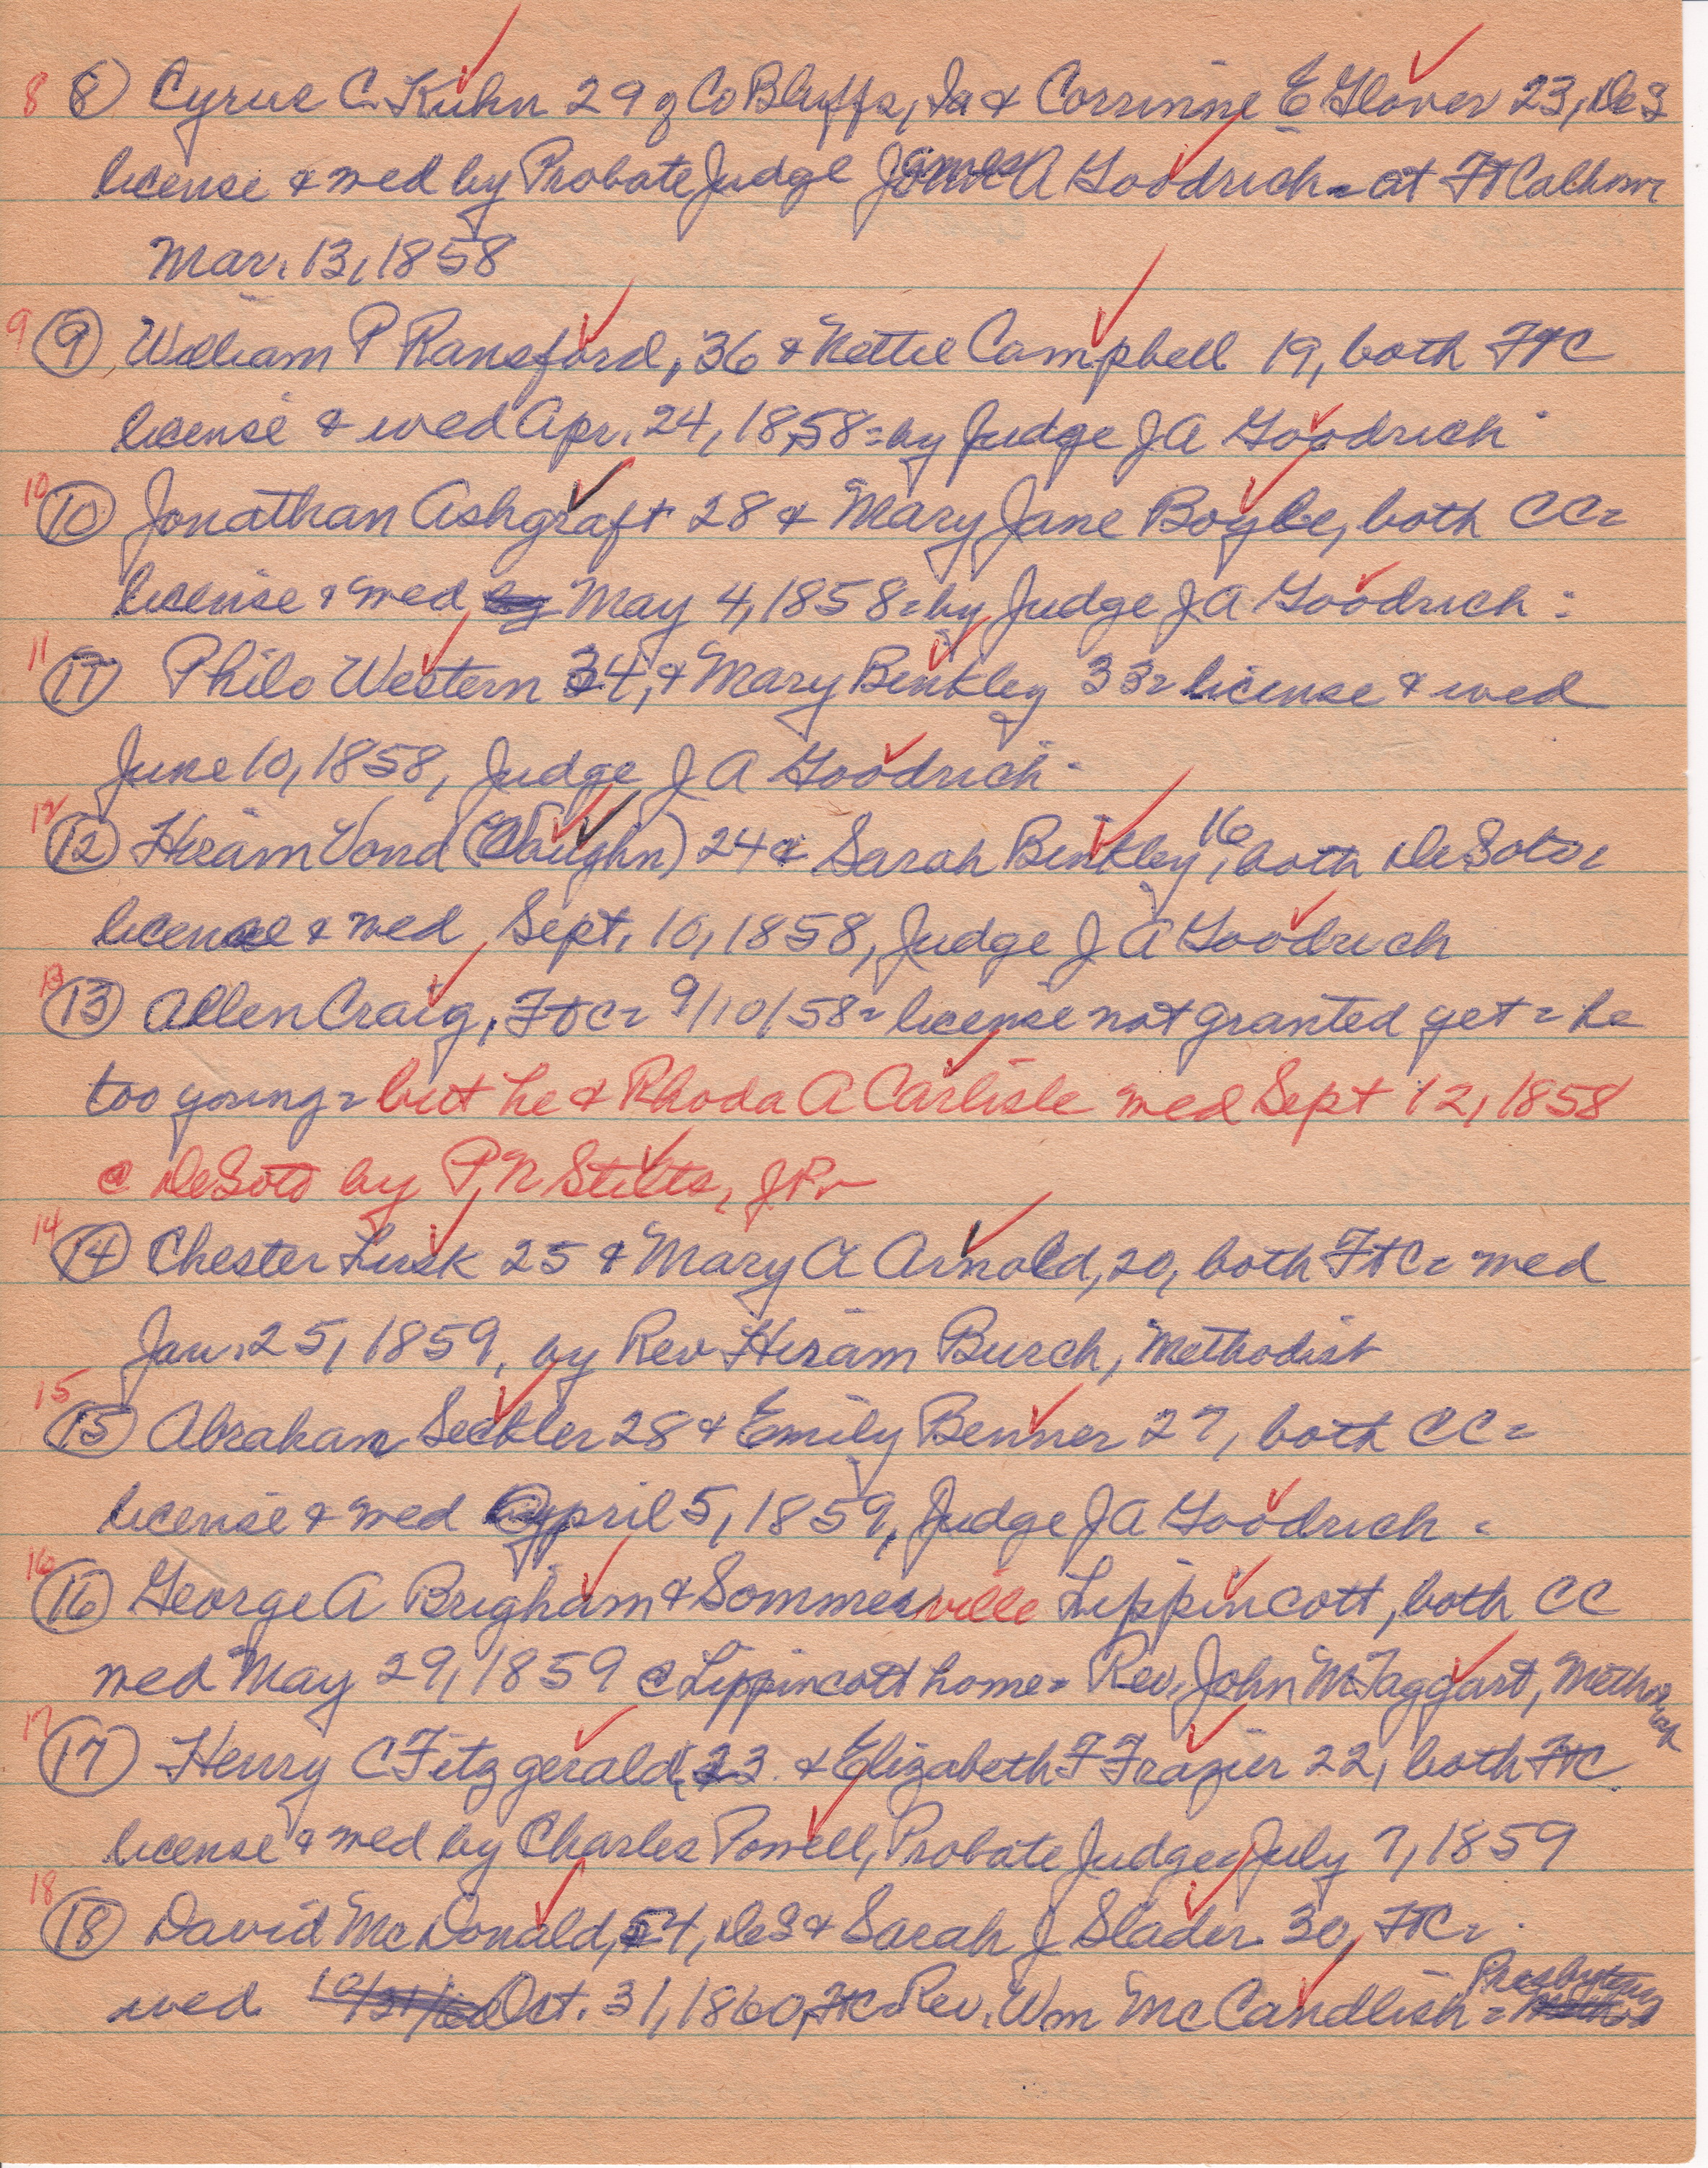 8 (8) Cyrus C. Kuhn 29 of Co Bluffs, Ia & Corrinne E Glover 23, DeS
license & wed by Probate Judge James A Goodrich = at Ft Calhoun
Mar. 13, 1858
9 (9) William P Ransford, 36 & Nettie Campbell 19, both FtC
license & wed Apr. 24, 1858 = by Judge J A Goodrich
10 (10) Jonathan Ashgraft 28 & Mary Jane Boyle, both CC =
license & wed May 4, 1858 = by Judge J A Goodrich =
11 (11) Philo Western 34, & Mary Binkley 33 = license & wed
June 10, 1858, Judge J A Goodrich -
12 (12) Hiram Vond (Vaughn) 24 & Sarah Binkley 16, both DeSoto =
license & wed Sept. 10, 1858, Judge J A Goodrich
13 (13) Allen Craig, FtC = 9/10/58 = license not granted yet = he
too young = but he & Rhoda A Carlisle wed Sept 12, 1858
@ DeSoto by P, N Stilts, JP
14 (14) Chester Lusk 25 & Mary A Arnold, 20, both FtC = wed
Jan. 25, 1859, by Rev Hiram Burch, Methodist
15 (15) Abraham Seckler 28 & Emily Benner 27, both CC =
license & wed April 5, 1859, Judge J A Goodrich =
16 (16) George A Brigham & Sommerville Lippincott, both CC
wed May 29, 1859 @ Lippincott home = Rev. John McTaggart, Methodist
17 (17) Henry C Fitzgerald, 23 & Elizabeth F Frazier 22, both FtC
license & wed by Charles Powell, Probate Judge = July 7, 1859
18 (18) David McDonald, 54, DeS & Sarah J Slader 30, FtC =
wed 10/31/60 Oct. 31, 1860, FtC = Rev. Wm McCandlish = Presbyterian